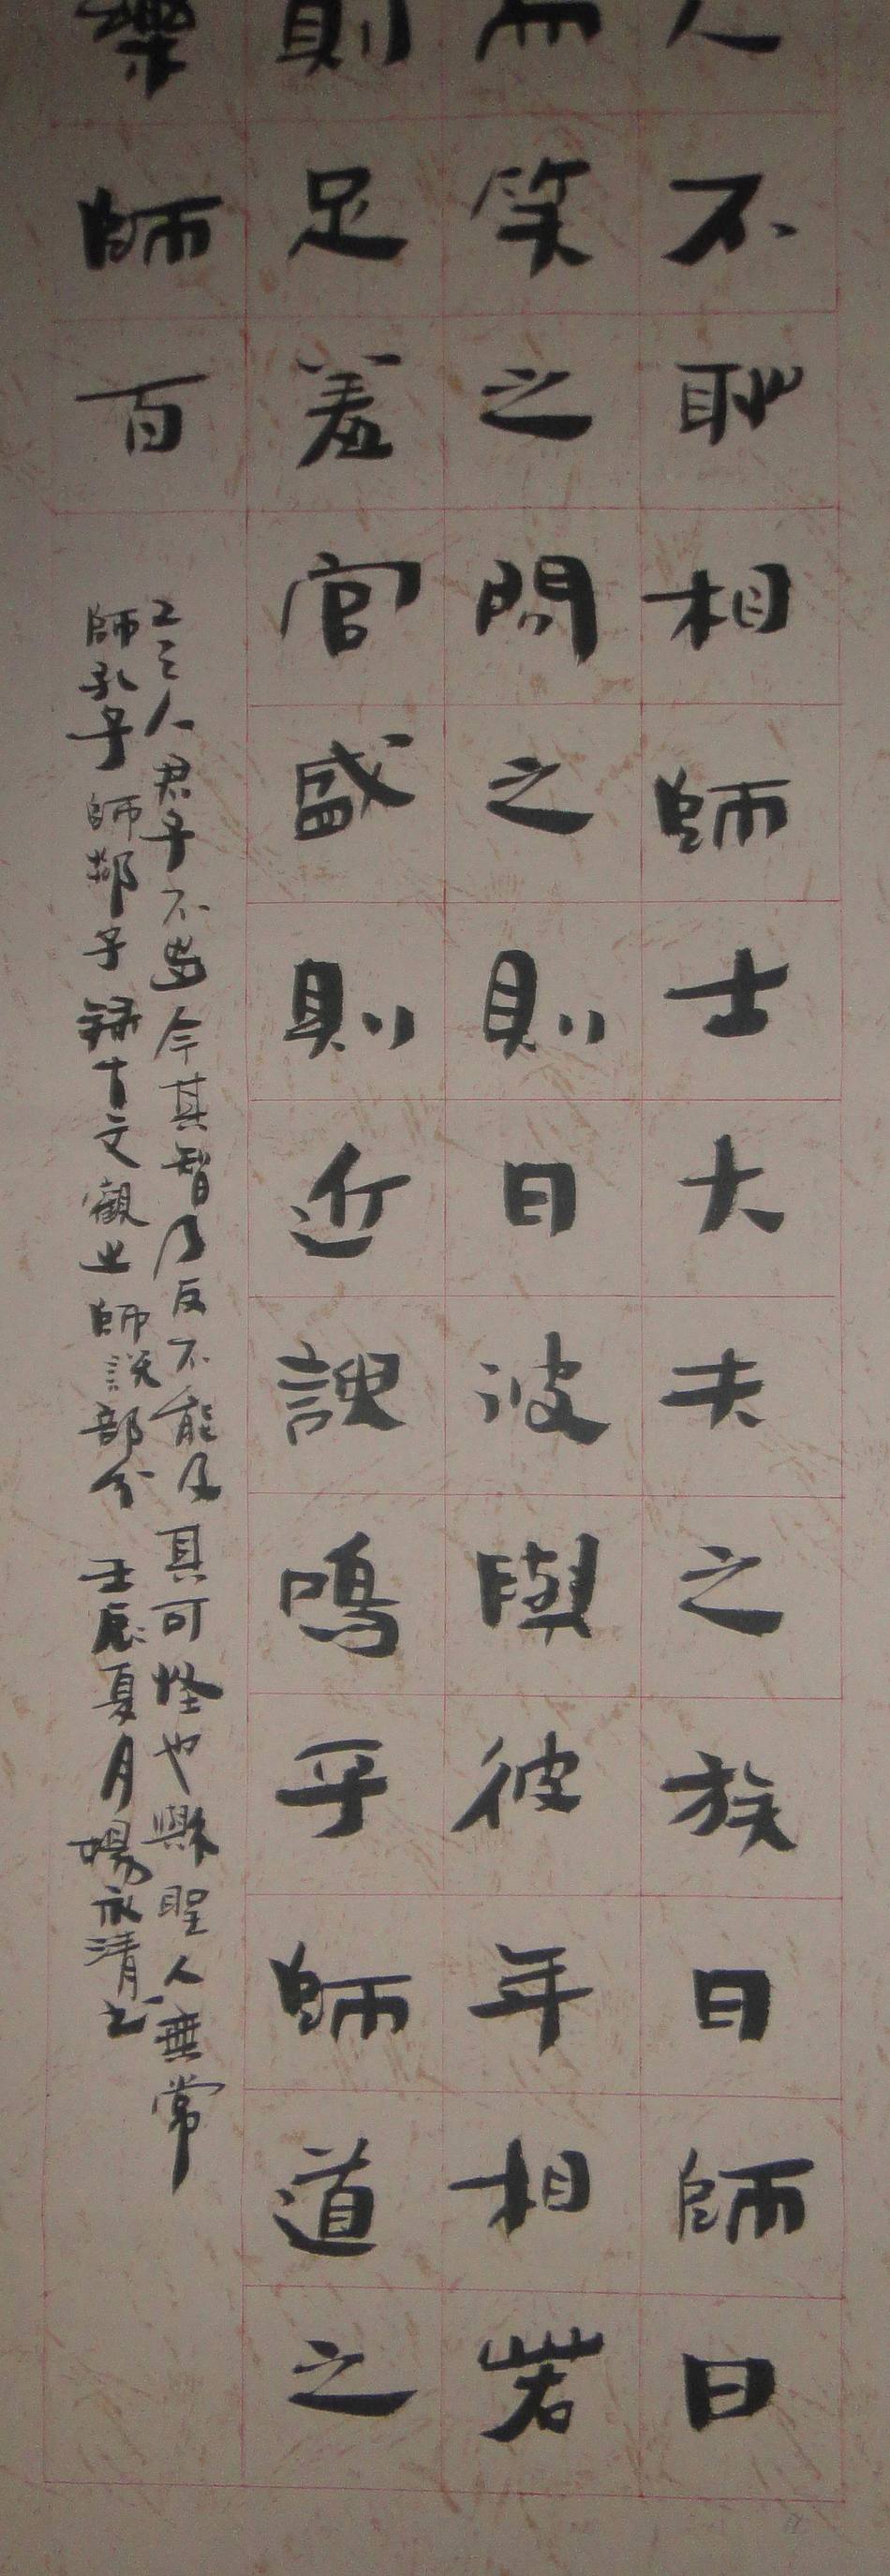 人不恥相師士大夫之族曰師曰
笑之問之則曰彼與彼年相若
則足羞官盛則近諛嗚乎師道之
樂師百
工之人君子不齒今其智乃反不能及其可怪也歟聖人無常
師孔子師郯子 錄古文觀止師說部分 壬辰夏月楊永清書